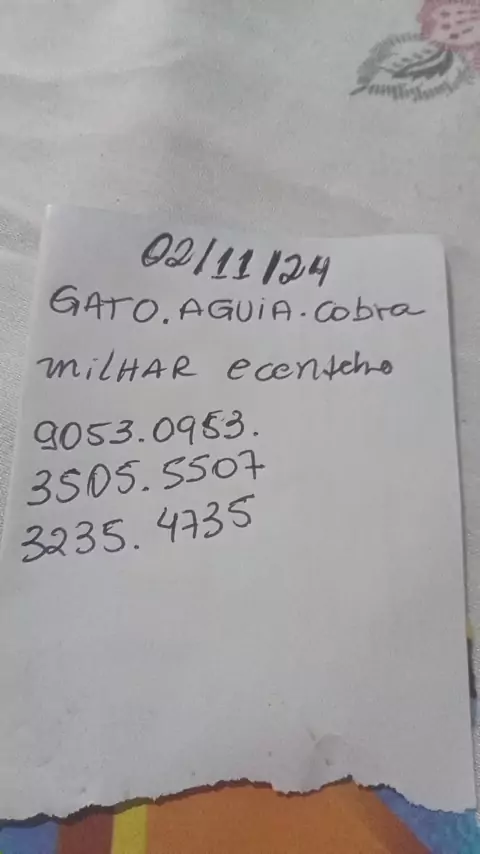 02/11/24
GATO. AGUiA. Cobra
milHAR e centena
9053.0953.
3505.5507
3235.4735